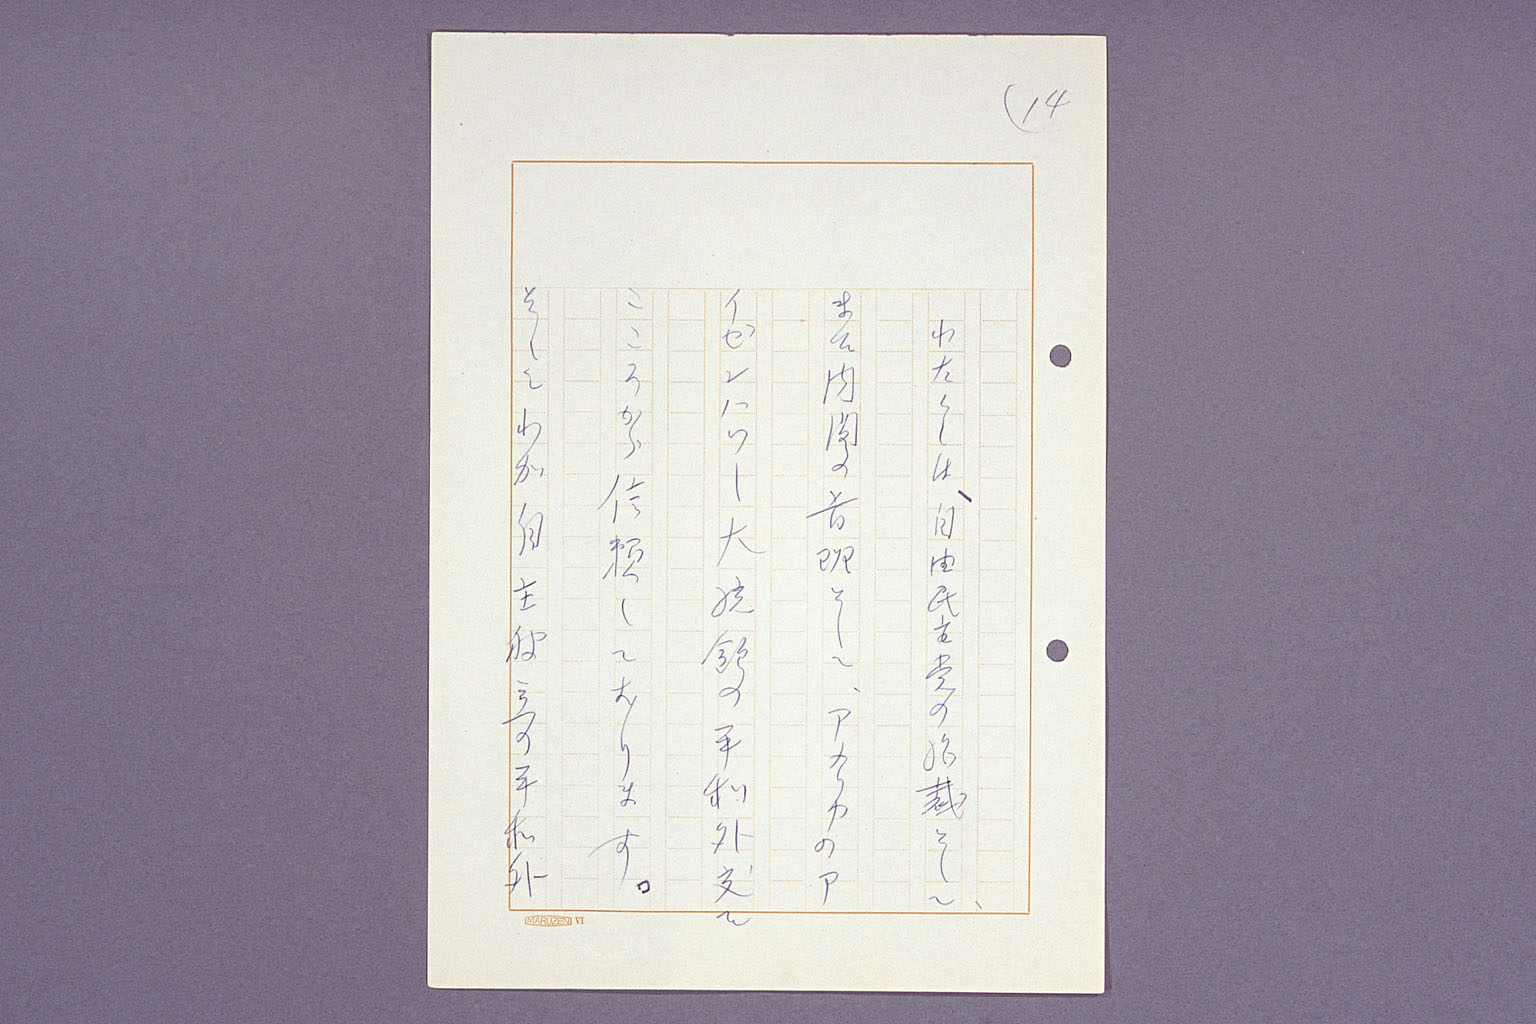 (14
わたくしは、自由民主党の総裁として、
また内閣の首班として、アメリカのア
イゼンハワー大統領の平和外交を
こころから信頼しております。
そしてわが自主独立の平和外
MARUZEN VI